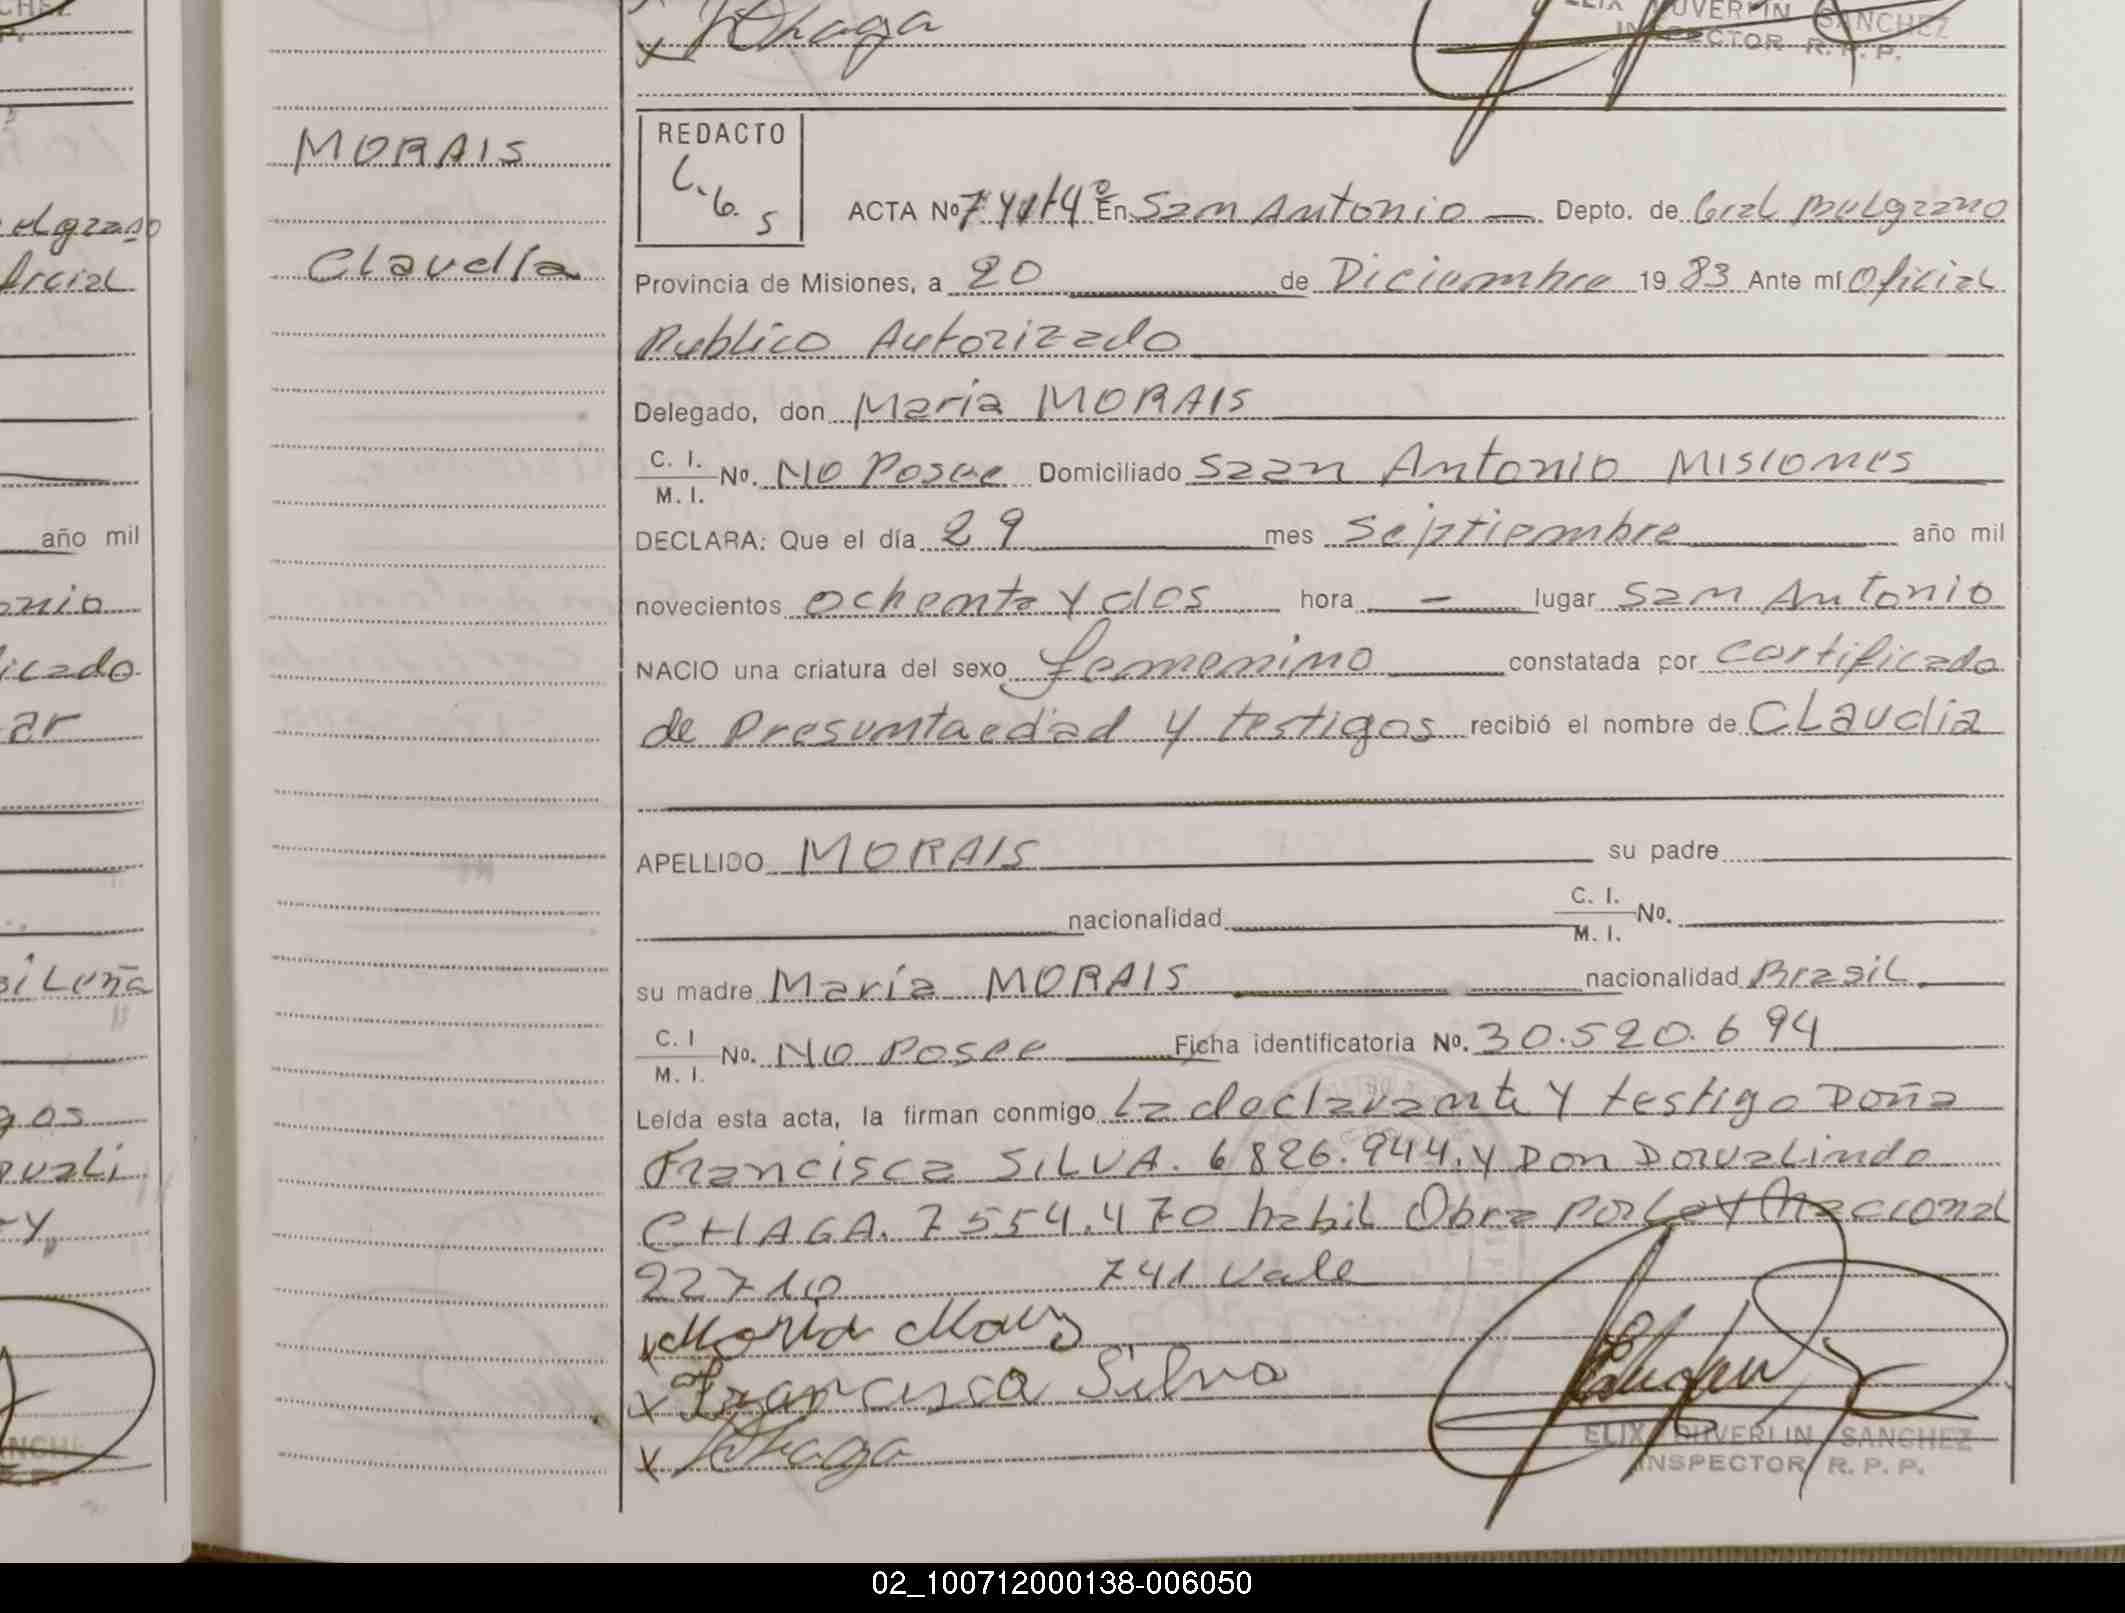 Chaga
SANCHEZ
INSPECTOR R. P. P.
MORAIS
Claudia
REDACTO
ACTA Nº En San Antonio — Depto. de Gral Belgrano
Provincia de Misiones, a 20 de Diciembre 1983 Ante mí Oficial
Publico Autorizado
Delegado, don María MORAIS
C. I.
M. I. Nº. No Posee Domiciliado Saan Antonio Misiones
DECLARA: Que el día 29 mes Septiembre año mil
novecientos ochenta y dos hora — lugar San Antonio
NACIO una criatura del sexo femenino constatada por certificado
de Presunta edad y testigos recibió el nombre de Claudia
APELLIDO MORAIS su padre
nacionalidad C. I.
M. I. Nº.
su madre María MORAIS nacionalidad Brasil
C. I
M. I. Nº. No Posee Ficha identificatoria Nº. 30.520.694
Leída esta acta, la firman conmigo La declarante y testigo Doña
Francisca SILVA. 6826.944. y Don Dorvalindo
CHAGA. 7554.470 habil Obra por Ley Nacional
22710 741 Vale
x Maria
x Francisca Silva
x Chaga
ELIX DUVERLIN SANCHEZ
INSPECTOR R. P. P.
año mil
02_100712000138-006050